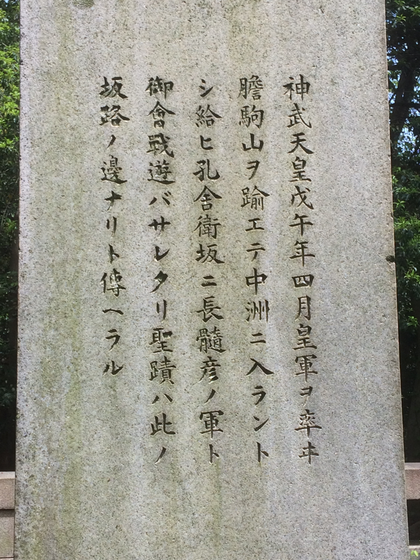 神武天皇戊午年四月皇軍ヲ率ヰ
膽駒山ヲ踰エテ中洲ニ入ラント
シ給ヒ孔舍衛坂ニ長髓彦ノ軍ト
御會戰遊バサレタリ聖蹟ハ此ノ
坂路ノ邊ナリト傳ヘラル